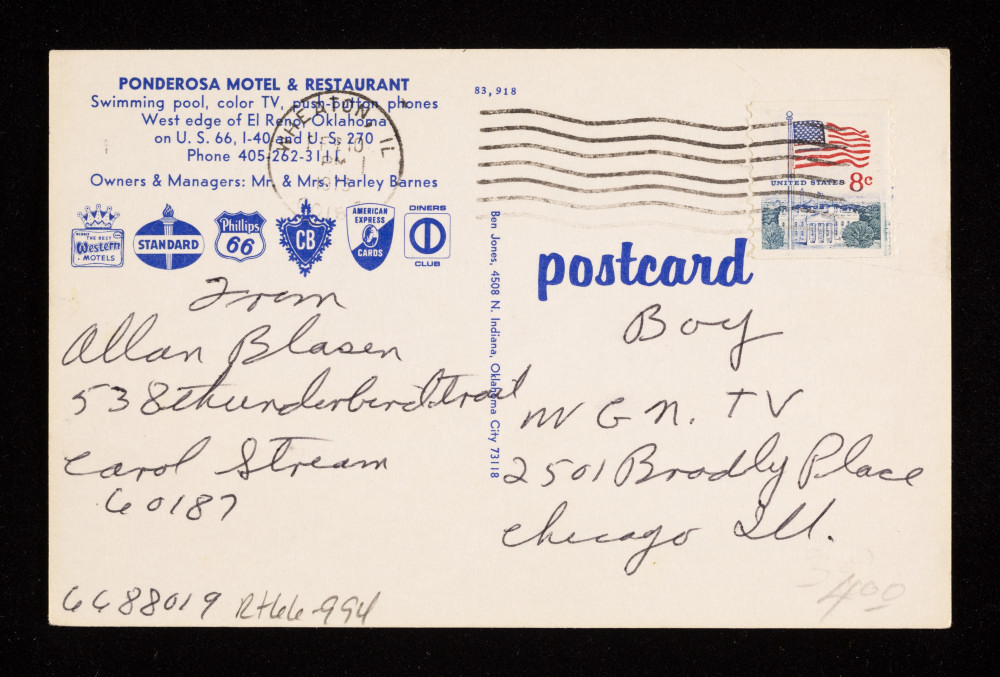 PONDEROSA MOTEL & RESTAURANT
Swimming pool, color TV, push-button phones
West edge of El Reno, Oklahoma
on U. S. 66, I-40 and U. S. 270
Phone 405-262-3111
Owners & Managers: Mr. & Mrs. Harley Barnes
THE BEST
Western
MOTELS
STANDARD
Phillips
66
CB
AMERICAN
EXPRESS
CARDS
DINERS
CLUB
From
Allan Blasen
538 thunderbird trail
Carol Stream
60187
6688019 RH66-994
83,918
Ben Jones, 4508 N. Indiana, Oklahoma City 73118
WHEATON, IL
PM
UNITED STATES 8c
postcard
Boy
W G N. TV
2501 Bradly Place
Chicago Ill.
400